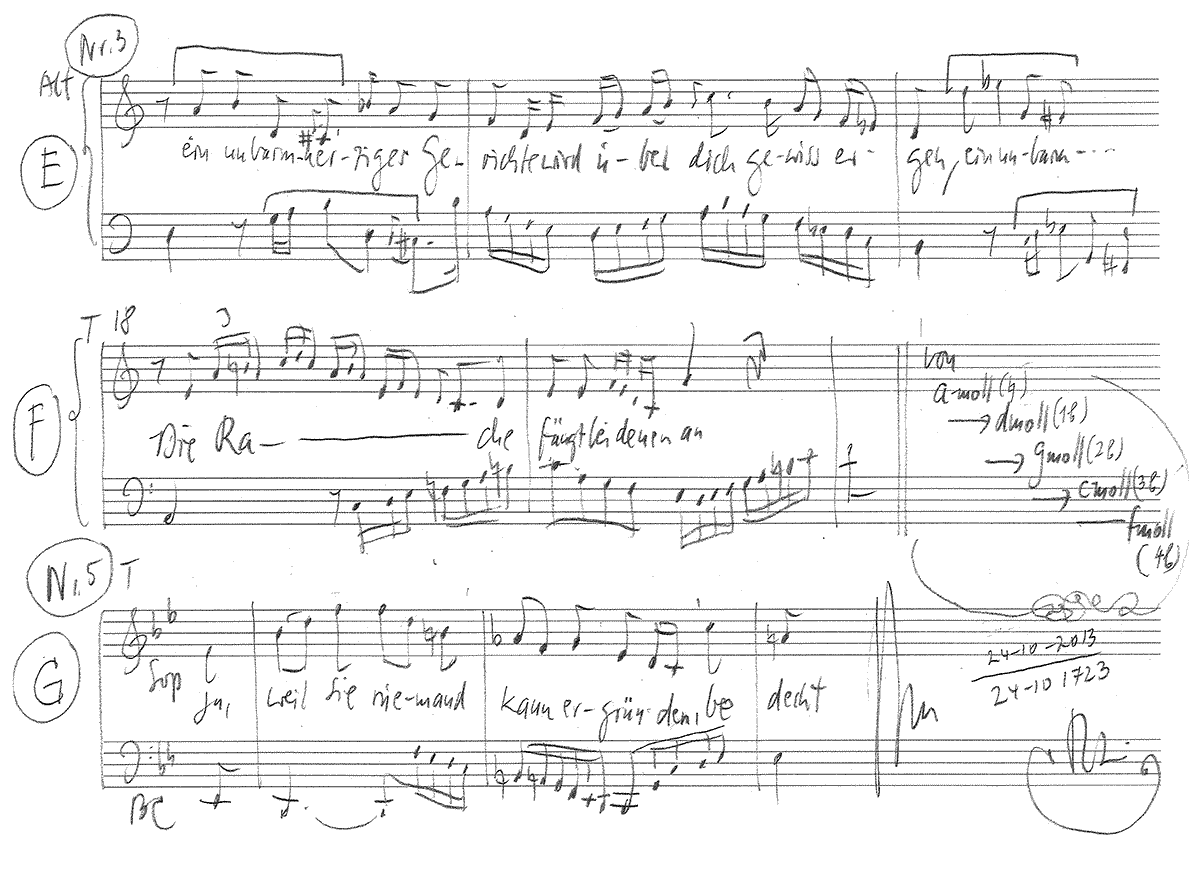 Nr.3
Alt
E
ein unbarm-her-ziger Ge- richte wird ü-ber dich ge-wiss er- gen, ein un-barm-...
T 18
3
F
Die Ra- che fängt bei denen an
von
a-moll (♮)
→ dmoll (1b)
→ gmoll (2b)
→ cmoll (3b)
fmoll
(4b)
Nr.5 T
G
Sop Ja, weil sie nie-mand kann er-grün-den, be deckt
24-10-2013
24-10 1723
BC